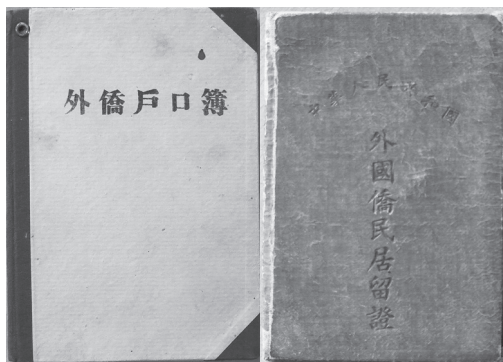 外僑戶口簿
中華人民共和國
外國僑民居留證